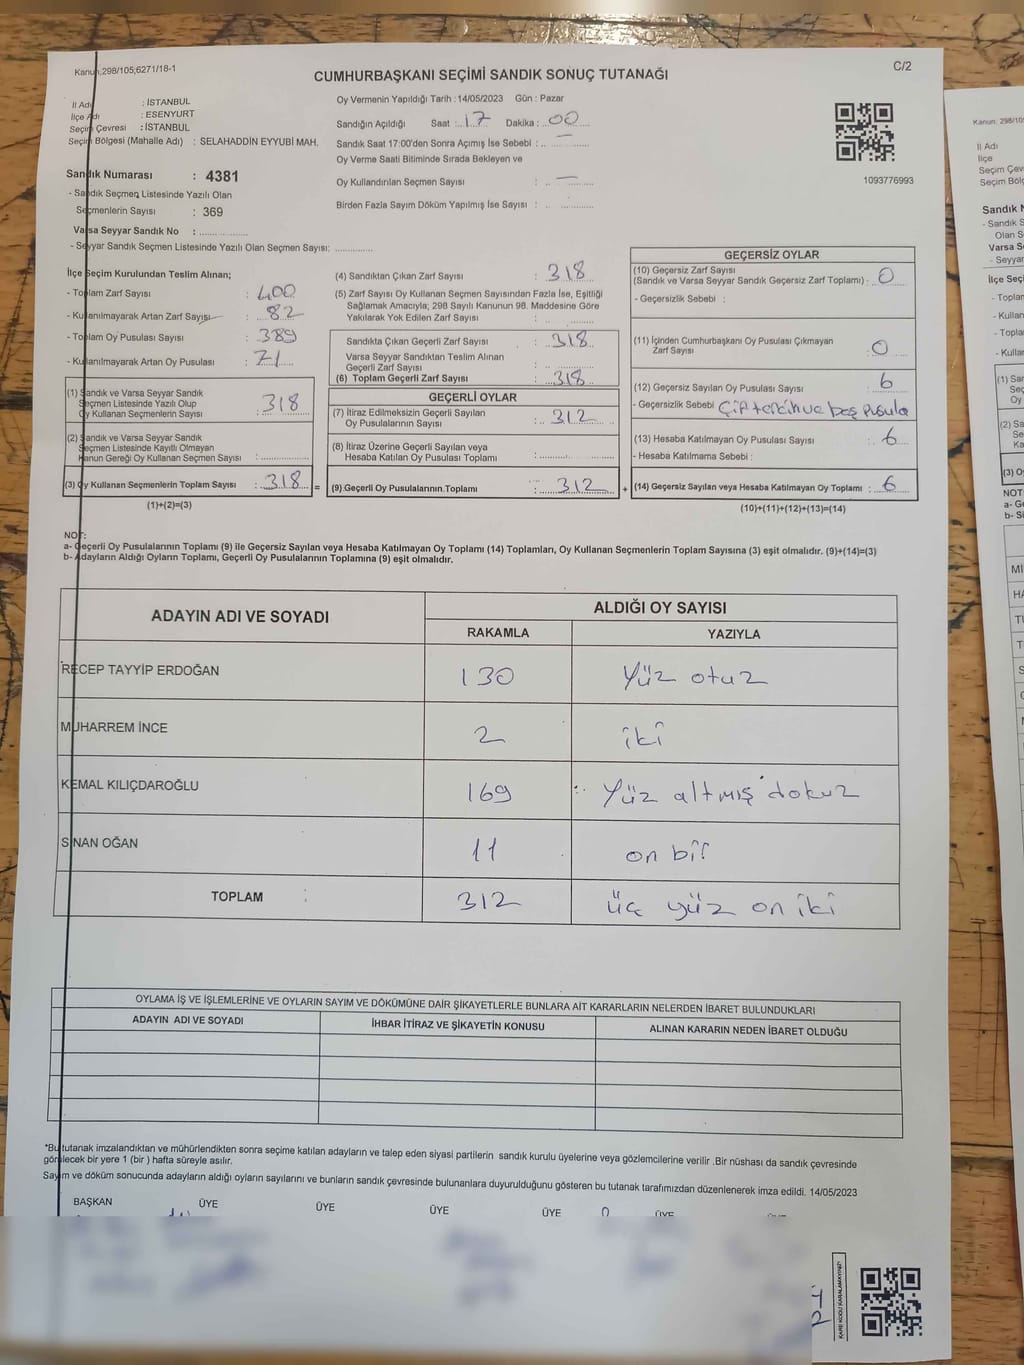 Kanun:298/105;6271/18-1
C/2
CUMHURBAŞKANI SEÇİMİ SANDIK SONUÇ TUTANAĞI
İl Adı : İSTANBUL
İlçe Adı : ESENYURT
Seçim Çevresi : İSTANBUL
Seçim Bölgesi (Mahalle Adı) : SELAHADDİN EYYUBİ MAH.
Oy Vermenin Yapıldığı Tarih :14/05/2023 Gün : Pazar
Sandığın Açıldığı Saat :..17 Dakika :..00
Sandık Saat 17:00'den Sonra Açımış İse Sebebi : .. —
Oy Verme Saati Bitiminde Sırada Bekleyen ve
Oy Kullandırılan Seçmen Sayısı : .. —
Birden Fazla Sayım Döküm Yapılmış İse Sayısı : ..
1093776993
Sandık Numarası : 4381
- Sandık Seçmen Listesinde Yazılı Olan
Seçmenlerin Sayısı : 369
Varsa Seyyar Sandık No :
- Seyyar Sandık Seçmen Listesinde Yazılı Olan Seçmen Sayısı:
İlçe Seçim Kurulundan Teslim Alınan;
- Toplam Zarf Sayısı : 400
- Kullanılmayarak Artan Zarf Sayısı : 82
- Toplam Oy Pusulası Sayısı : 389
- Kullanılmayarak Artan Oy Pusulası : 71
(1) Sandık ve Varsa Seyyar Sandık
Seçmen Listesinde Yazılı Olup
Oy Kullanan Seçmenlerin Sayısı : 318
(2) Sandık ve Varsa Seyyar Sandık
Seçmen Listesinde Kayıtlı Olmayan
Kanun Gereği Oy Kullanan Seçmen Sayısı :
(3) Oy Kullanan Seçmenlerin Toplam Sayısı : 318 =
(1)+(2)=(3)
(4) Sandıktan Çıkan Zarf Sayısı : 318
(5) Zarf Sayısı Oy Kullanan Seçmen Sayısından Fazla İse, Eşitliği
Sağlamak Amacıyla; 298 Sayılı Kanunun 98. Maddesine Göre
Yakılarak Yok Edilen Zarf Sayısı :
Sandıkta Çıkan Geçerli Zarf Sayısı : 318
Varsa Seyyar Sandıktan Teslim Alınan
Geçerli Zarf Sayısı :
(6) Toplam Geçerli Zarf Sayısı : 318
GEÇERLİ OYLAR
(7) İtiraz Edilmeksizin Geçerli Sayılan
Oy Pusulalarının Sayısı : 312
(8) İtiraz Üzerine Geçerli Sayılan veya
Hesaba Katılan Oy Pusulası Toplamı :
(9).Geçerli Oy Pusulalarının Toplamı : 312 +
GEÇERSİZ OYLAR
(10) Geçersiz Zarf Sayısı
(Sandık ve Varsa Seyyar Sandık Geçersiz Zarf Toplamı) : 0
- Geçersizlik Sebebi :
(11) İçinden Cumhurbaşkanı Oy Pusulası Çıkmayan
Zarf Sayısı : 0
(12) Geçersiz Sayılan Oy Pusulası Sayısı : 6
- Geçersizlik Sebebi Çift tercih ve boş pusula
(13) Hesaba Katılmayan Oy Pusulası Sayısı : 6
- Hesaba Katılmama Sebebi :
(14) Geçersiz Sayılan veya Hesaba Katılmayan Oy Toplamı : 6
(10)+(11)+(12)+(13)=(14)
NOT:
a- Geçerli Oy Pusulalarının Toplamı (9) ile Geçersiz Sayılan veya Hesaba Katılmayan Oy Toplamı (14) Toplamları, Oy Kullanan Seçmenlerin Toplam Sayısına (3) eşit olmalıdır. (9)+(14)=(3)
b- Adayların Aldığı Oyların Toplamı, Geçerli Oy Pusulalarının Toplamına (9) eşit olmalıdır.
ADAYIN ADI VE SOYADI ALDIĞI OY SAYISI
RAKAMLA YAZIYLA
RECEP TAYYİP ERDOĞAN 130 Yüz otuz
MUHARREM İNCE 2 iki
KEMAL KILIÇDAROĞLU 169 Yüz altmış dokuz
SİNAN OĞAN 11 on bir
TOPLAM : 312 üç yüz on iki
OYLAMA İŞ VE İŞLEMLERİNE VE OYLARIN SAYIM VE DÖKÜMÜNE DAİR ŞİKAYETLERLE BUNLARA AİT KARARLARIN NELERDEN İBARET BULUNDUKLARI
ADAYIN ADI VE SOYADI İHBAR İTİRAZ VE ŞİKAYETİN KONUSU ALINAN KARARIN NEDEN İBARET OLDUĞU
*Bu tutanak imzalandıktan ve mühürlendikten sonra seçime katılan adayların ve talep eden siyasi partilerin sandık kurulu üyelerine veya gözlemcilerine verilir .Bir nüshası da sandık çevresinde
görülecek bir yere 1 (bir ) hafta süreyle asılır.
Sayım ve döküm sonucunda adayların aldığı oyların sayılarını ve bunların sandık çevresinde bulunanlara duyurulduğunu gösteren bu tutanak tarafımızdan düzenlenerek imza edildi. 14/05/2023
BAŞKAN ÜYE ÜYE ÜYE ÜYE ÜYE
KARE KODU KARALAMAYINIZ!